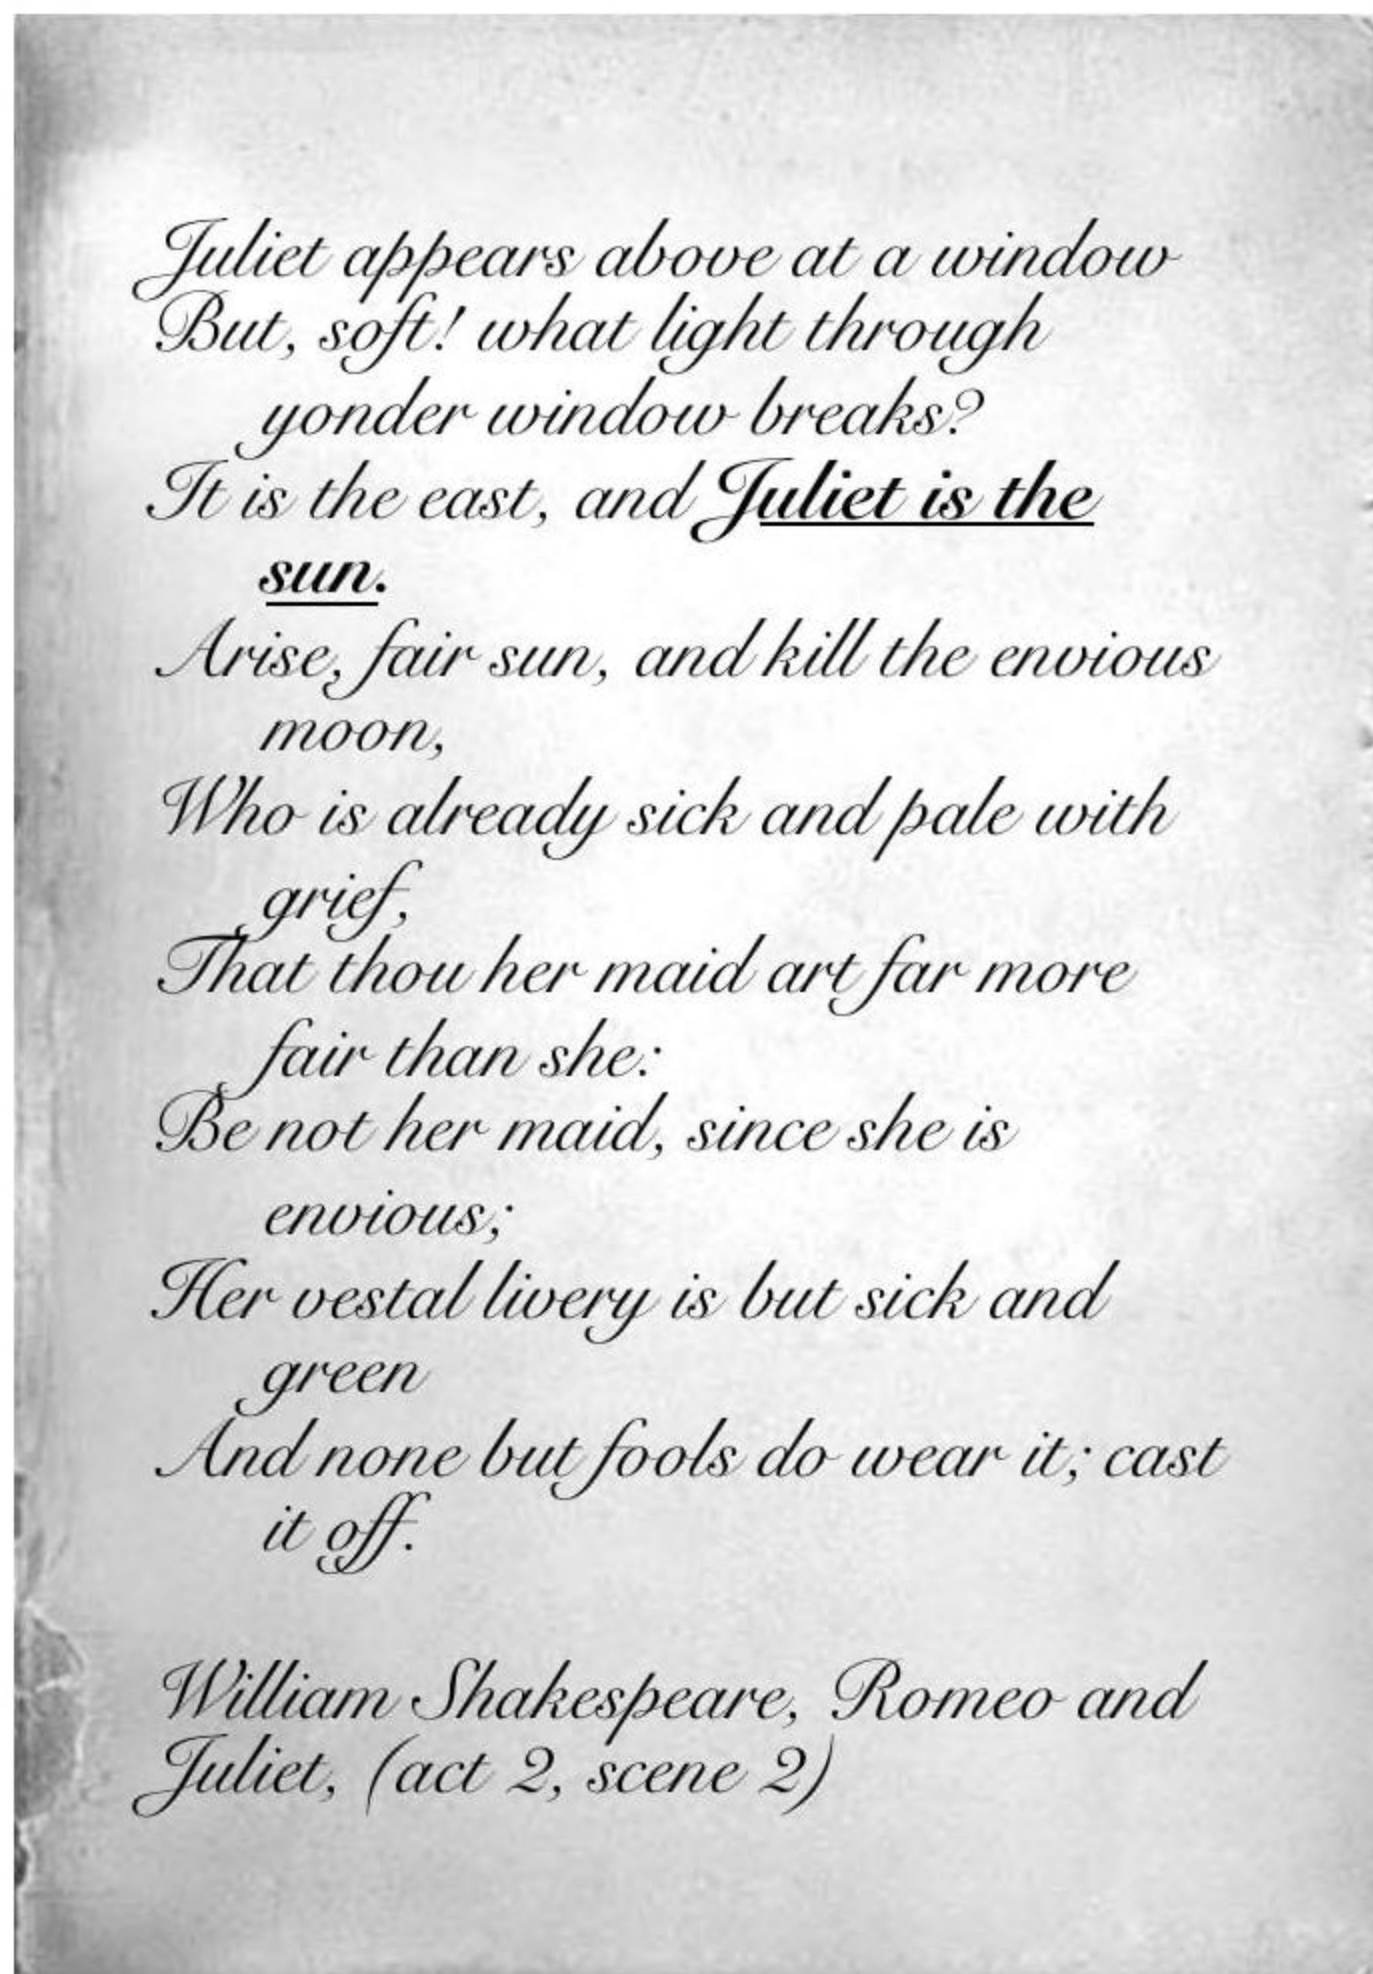 Juliet appears above at a window
But, soft! what light through
yonder window breaks?
It is the east, and Juliet is the
sun.
Arise, fair sun, and kill the envious
moon,
Who is already sick and pale with
grief,
That thou her maid art far more
fair than she:
Be not her maid, since she is
envious;
Her vestal livery is but sick and
green
And none but fools do wear it; cast
it off.
William Shakespeare, Romeo and
Juliet, (act 2, scene 2)